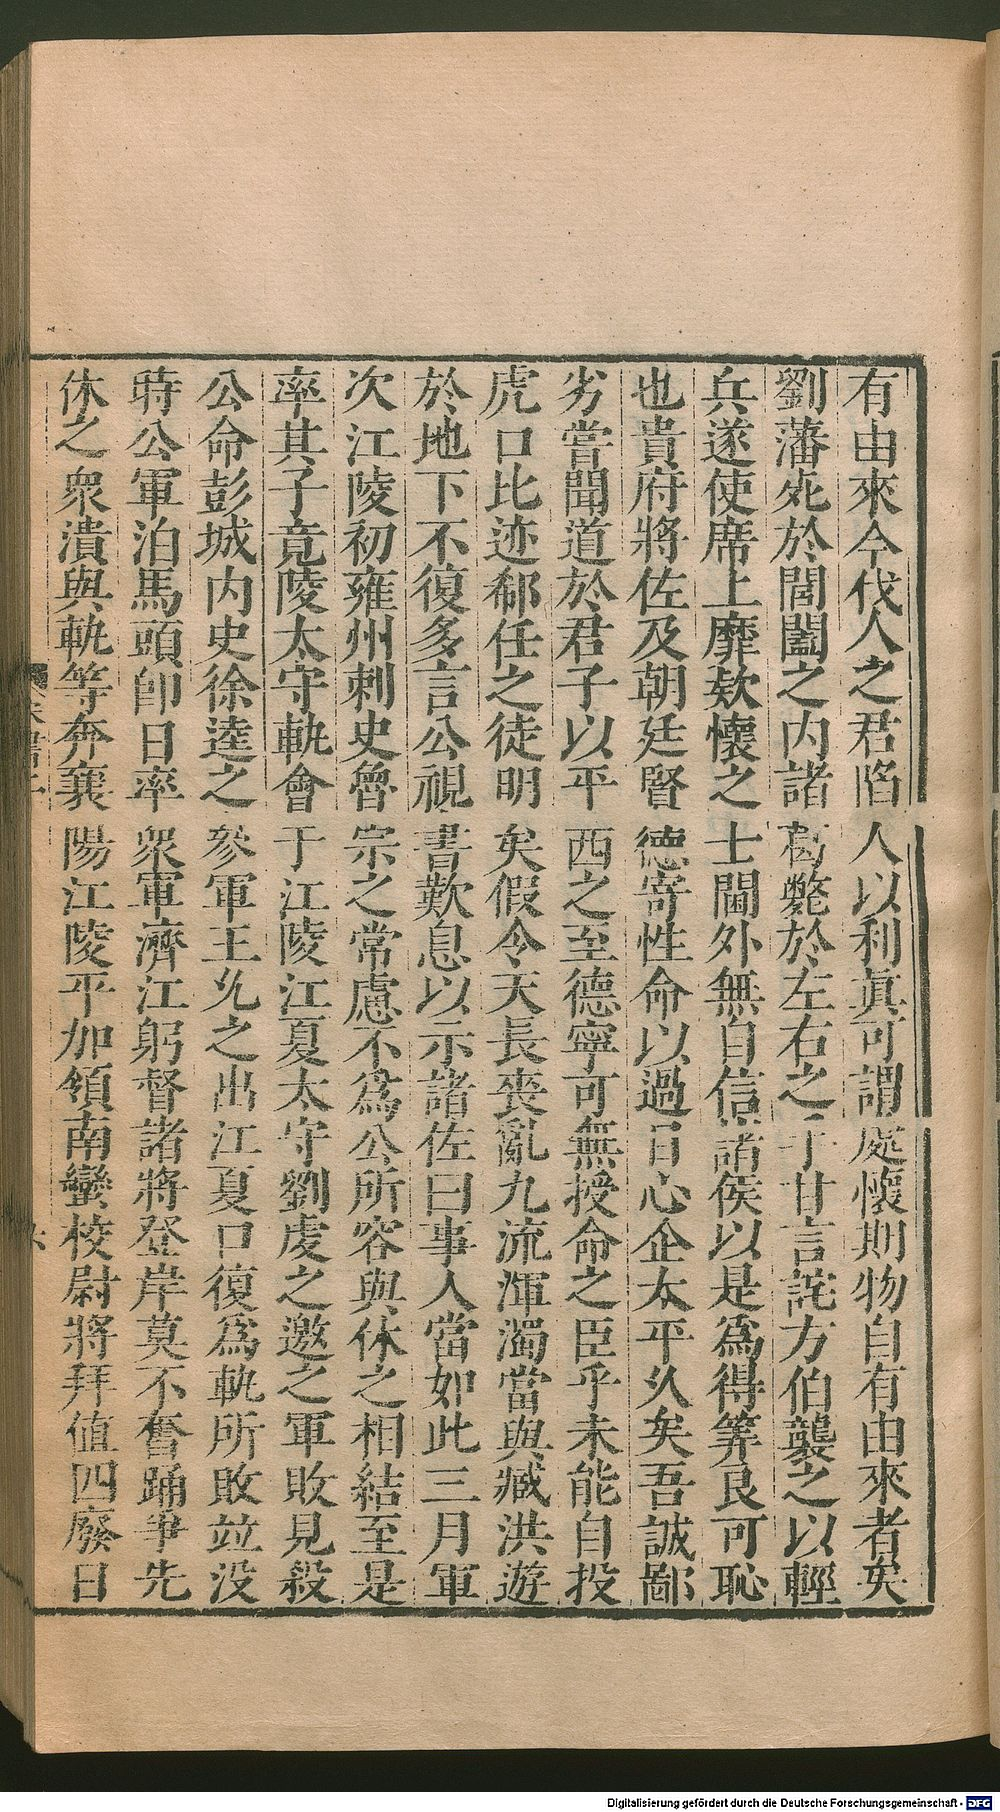 有由來今伐人之君陷人以利真可謂處懷期物自有由來者矣
劉藩死於閶闔之内諸葛斃於左右之手甘言詫方伯襲之以輕
兵遂使席上靡欵懷之士閫外無自信諸侯以是爲得筭良可恥
也貴府將佐及朝廷賢德寄性命以過日心企太平久矣吾誠鄙
劣嘗聞道於君子以平西之至德寧可無授命之臣乎未能自投
虎口比迹郗任之徒明矣假令天長喪亂九流渾濁當與臧洪遊
於地下不復多言公視書歎息以示諸佐曰事人當如此三月軍
次江陵初雍州刺史魯宗之常慮不爲公所容與休之相結至是
率其子竟陵太守軌會于江陵江夏太守劉虔之邀之軍敗見殺
公命彭城内史徐逵之參軍王允之出江夏口復爲軌所敗竝没
時公軍泊馬頭即日率衆軍濟江躬督諸將登岸莫不奮踊爭先
休之衆潰與軌等奔襄陽江陵平加領南蠻校尉將拜值四廢日